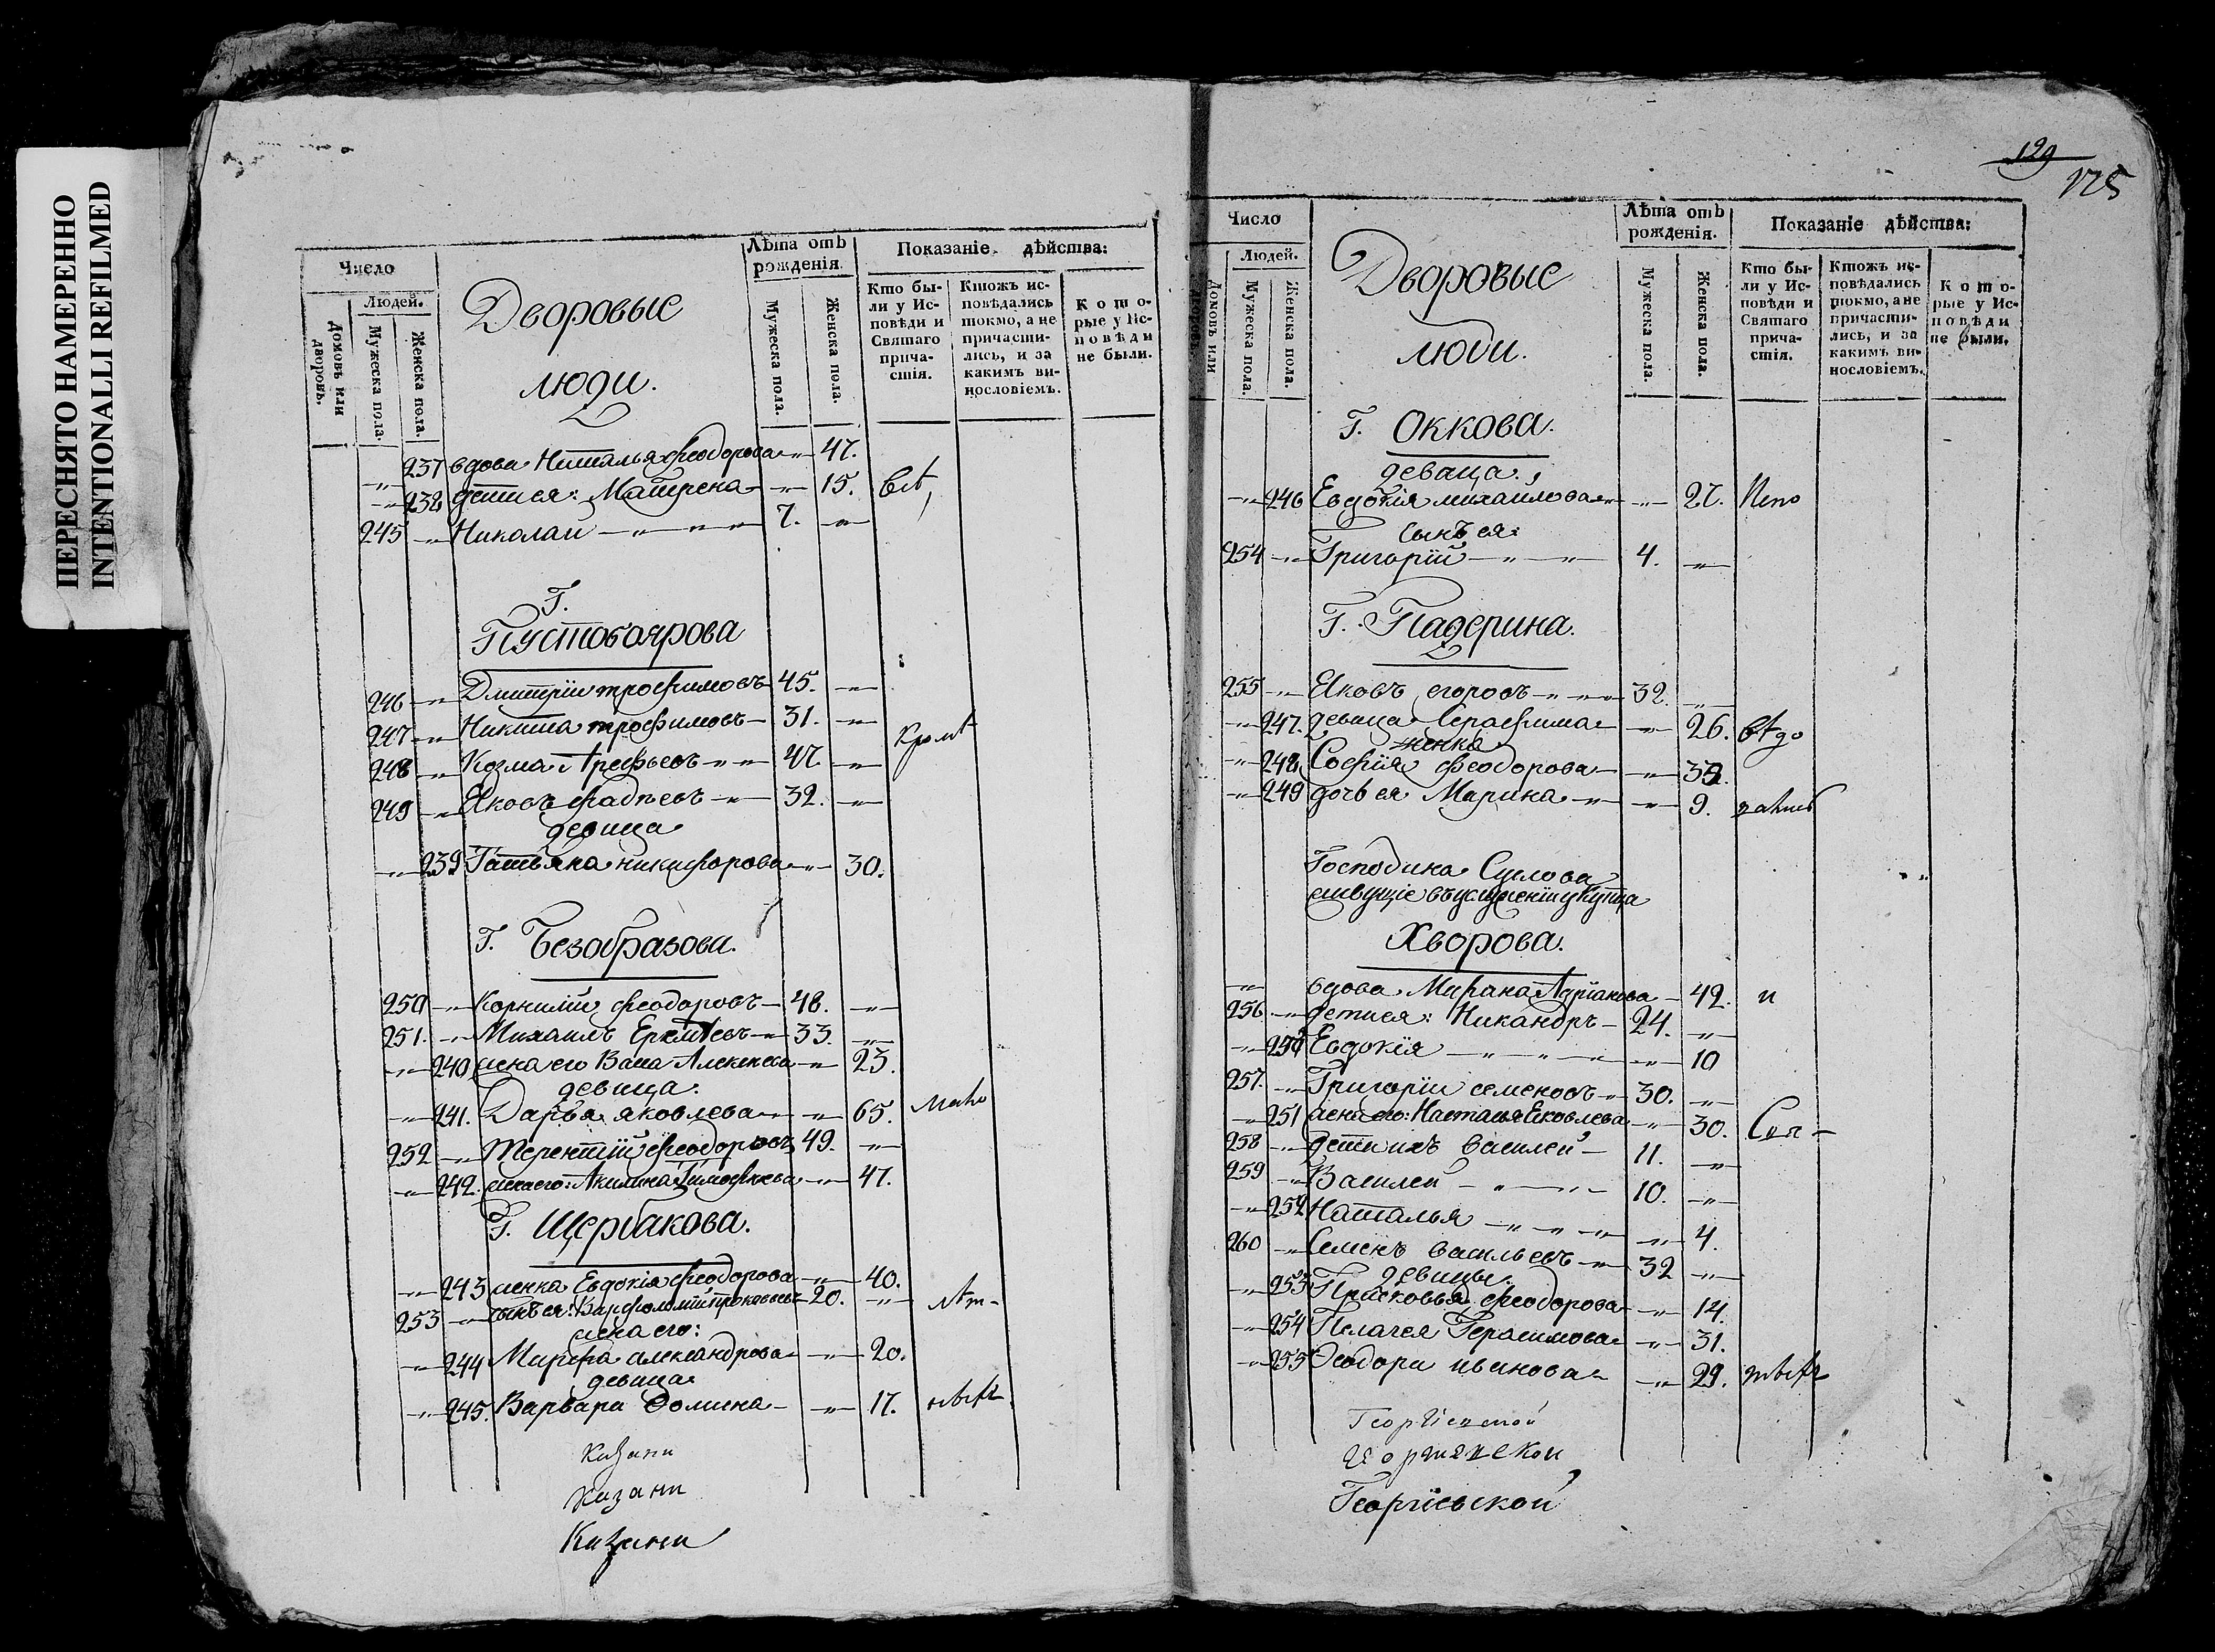 ПЕРЕСНЯТО НАМЕРЕННО
INTENTIONALLI REFILMED
Число
Людей.
Домовъ или дворовъ.
Мужеска пола.
Женска пола.
Дворовые
люди.
Лѣта отъ рожденія.
Мужеска пола.
Женска пола.
Показаніе дѣйства:
Кто были у Исповѣди и Святаго причастія.
Ктожъ исповѣдались токмо, а не причастились, и за какимъ винословіемъ.
Которые у Исповѣди не были.
237 вдова Наталья Феодорова 47.
238 дети ея: Матрена 15. всѣ,
245 Николаи 7.
Г.
Пустобоярова
246 Дмитрiи трофимовъ 45.
247 Никита трофимовъ 31. кромѣ
248 Козма Арефьевъ 47.
249 Яковъ Фадѣевъ 32.
девица
239 Татьяна никифорова 30.
Г. Безобразова.
250 Корнилiй Феодоровъ 48.
251. Михаилъ Еремѣевъ 33.
240 жена его Васа Алексеева 23.
девица:
241. Дарья яковлева 65. мало
252 Терентiй Феодоровъ 49.
242. жена его: Акилина Тимофеева 47.
Г. Щербакова.
243 женка Евдокiя Феодорова 40.
253 сынъ ея: Варфоломѣй прокопьевъ 20. лѣт-
жена его:
244 Марфа александрова 20.
девица
245. Варвара Фомина 17. нихъ
Казани
Казани
Казани
129
125
Число
Людей.
Домовъ или дворовъ.
Мужеска пола.
Женска пола.
Дворовые
люди.
Лѣта отъ рожденія.
Мужеска пола.
Женска пола.
Показаніе дѣйства:
Кто были у Исповѣди и Святаго причастія.
Ктожъ исповѣдались токмо, а не причастились, и за какимъ винословіемъ.
Которые у Исповѣди не были.
Г. Оккова.
девица.
246 Евдокiя михаилова 27. Испо
сынъ ея:
254 Григорiй 4.
Г. Падерина.
255 Яковъ егоровъ 32.
247. девица Серафима 26. вѣдо
женка
248 Софiя Феодорова 39.
249 дочь ея Марина 9.
Господина Суслова
живущiе въ услуженiи у купца
Хворова.
вдова Марiана Адрiанова 42. и
256 дети ея: Никандръ 24.
250 Евдокiя 10
257. Григорiи семеновъ 30.
251 жена его: Настасья Яковлева 30.
258 дети ихъ василей 11.
259 Василей 10.
252 Наталья 4.
260 Семенъ васильевъ 32
девицы:
253 Прасковья Феодорова 14.
254 Пелагея Герасимова 31.
255 Феодора иванова 29.
Георгiевской
Георгiевской
Георгiевской